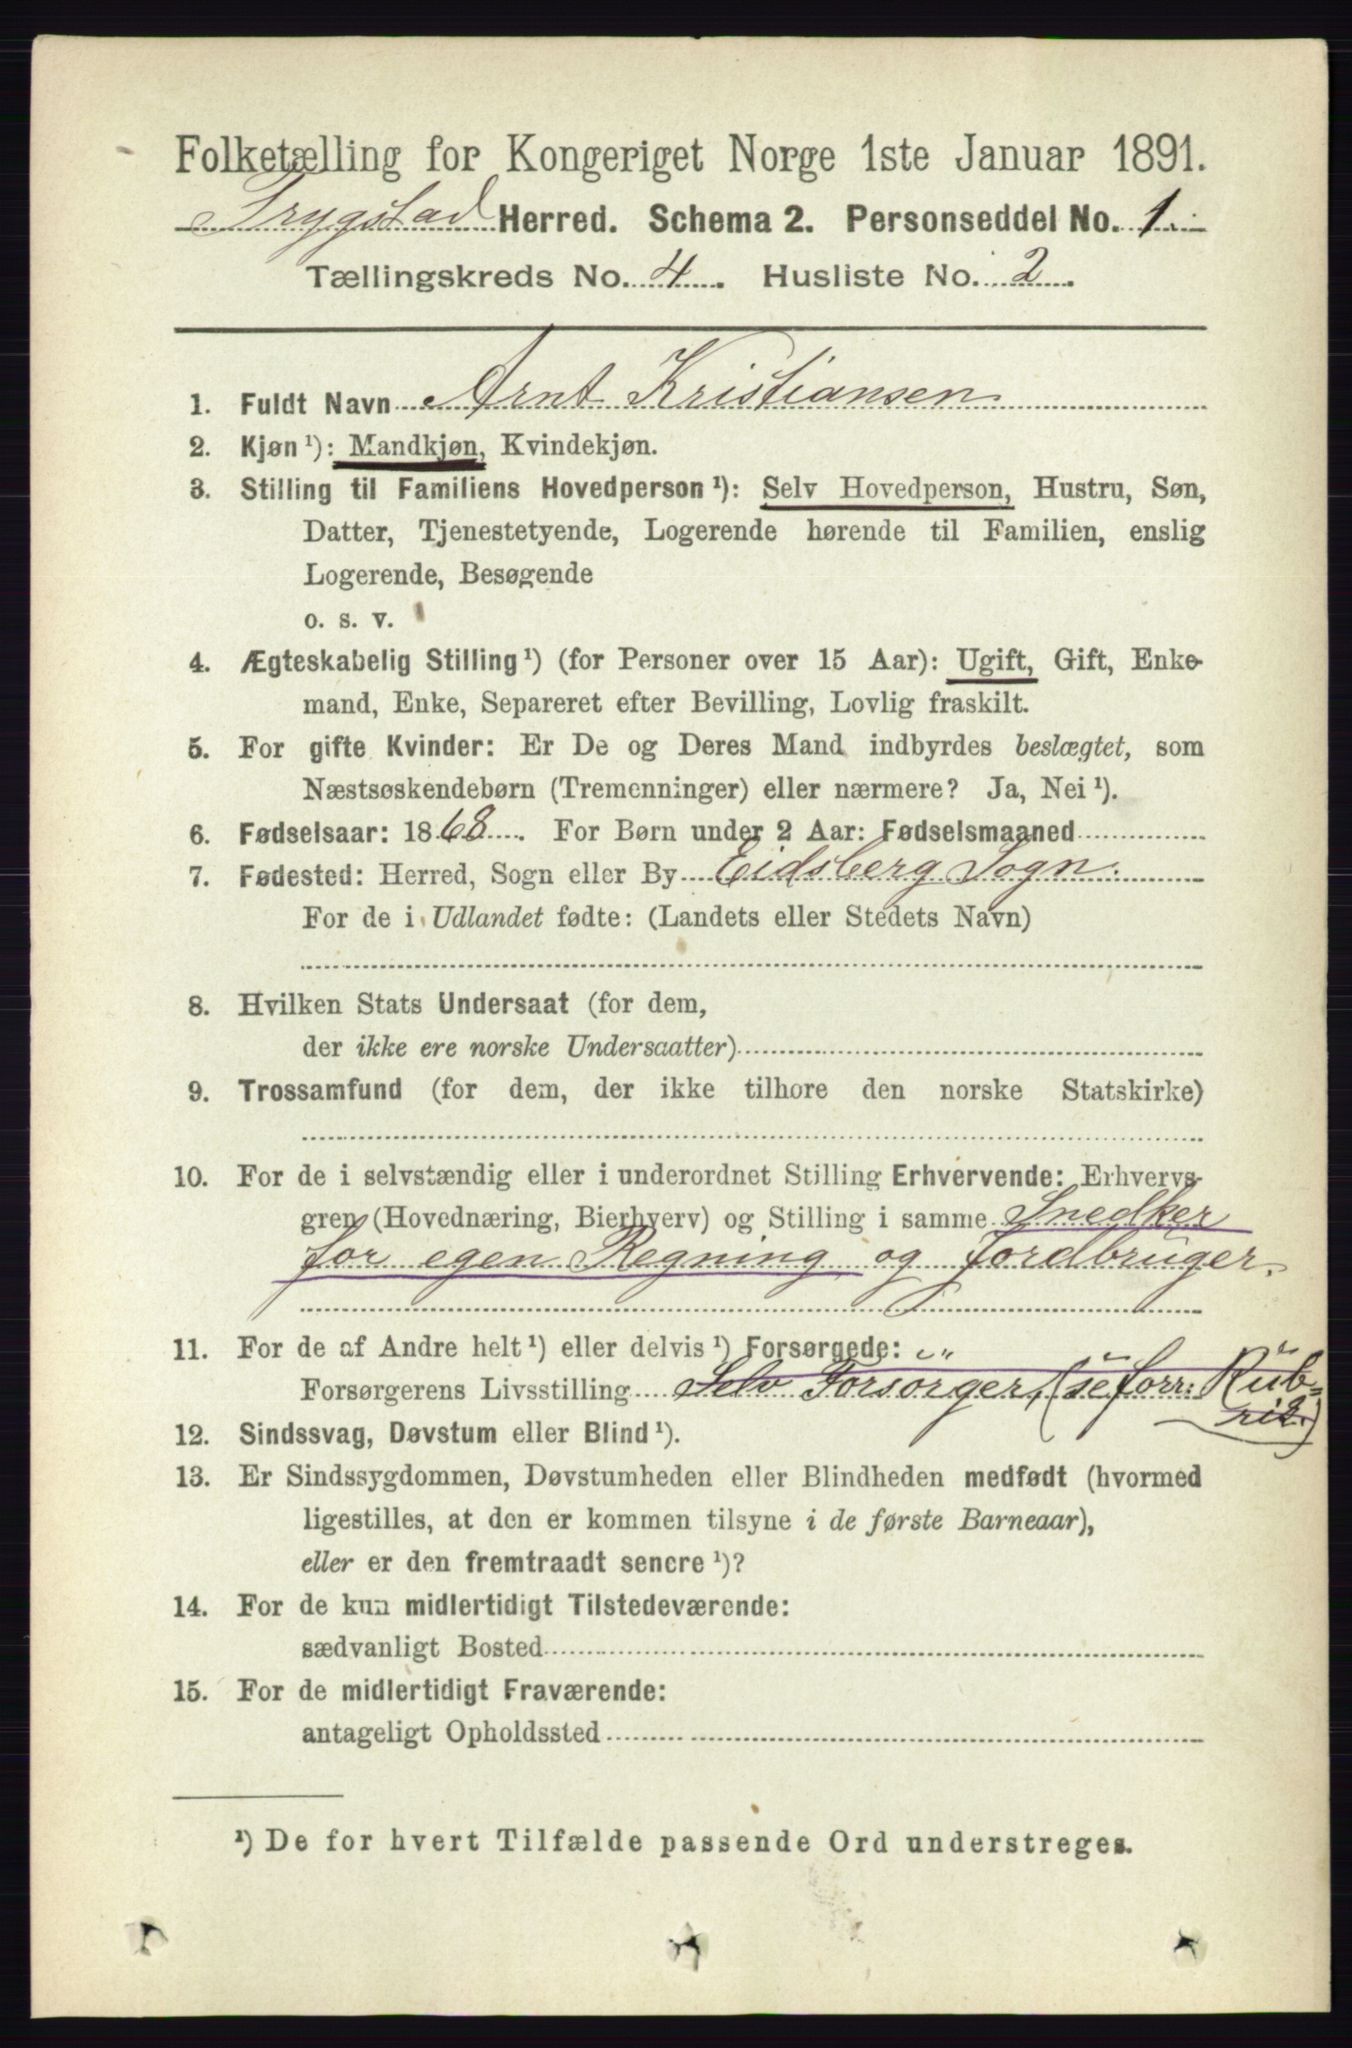 Folketælling for Kongeriget Norge 1ste Januar 1891.
Trygstad Herred. Schema 2. Personseddel No. 1
Tællingskreds No. 4. Husliste No. 2.
1. Fuldt Navn Arnt Kristiansen
2. Kjøn ¹): Mandkjøn, Kvindekjøn.
3. Stilling til Familiens Hovedperson ¹): Selv Hovedperson, Hustru, Søn,
Datter, Tjenestetyende, Logerende hørende til Familien, enslig
Logerende, Besøgende
o. s. v.
4. Ægteskabelig Stilling ¹) (for Personer over 15 Aar): Ugift, Gift, Enke-
mand, Enke, Separeret efter Bevilling, Lovlig fraskilt.
5. For gifte Kvinder: Er De og Deres Mand indbyrdes beslægtet, som
Næstsøskendebørn (Tremenninger) eller nærmere? Ja, Nei ¹).
6. Fødselsaar: 1868. For Børn under 2 Aar: Fødselsmaaned
7. Fødested: Herred, Sogn eller By Eidsberg Sogn.
For de i Udlandet fødte: (Landets eller Stedets Navn)
8. Hvilken Stats Undersaat (for dem,
der ikke ere norske Undersaatter)
9. Trossamfund (for dem, der ikke tilhore den norske Statskirke)
10. For de i selvstændig eller i underordnet Stilling Erhvervende: Erhvervs-
gren (Hovednæring, Bierhverv) og Stilling i samme Snedker
for egen Regning og Jordbruger.
11. For de af Andre helt ¹) eller delvis ¹) Forsørgede: „ "
Forsørgerens Livsstilling Selv Forsörger, (se forr: Rüb=
rik.)
12. Sindssvag, Døvstum eller Blind ¹).
13. Er Sindssygdommen, Døvstumheden eller Blindheden medfødt (hvormed
ligestilles, at den er kommen tilsyne i de første Barneaar),
eller er den fremtraadt senere ¹)?
14. For de kun midlertidigt Tilstedeværende:
sædvanligt Bosted
15. For de midlertidigt Fraværende:
antageligt Opholdssted
¹) De for hvert Tilfælde passende Ord understreges.